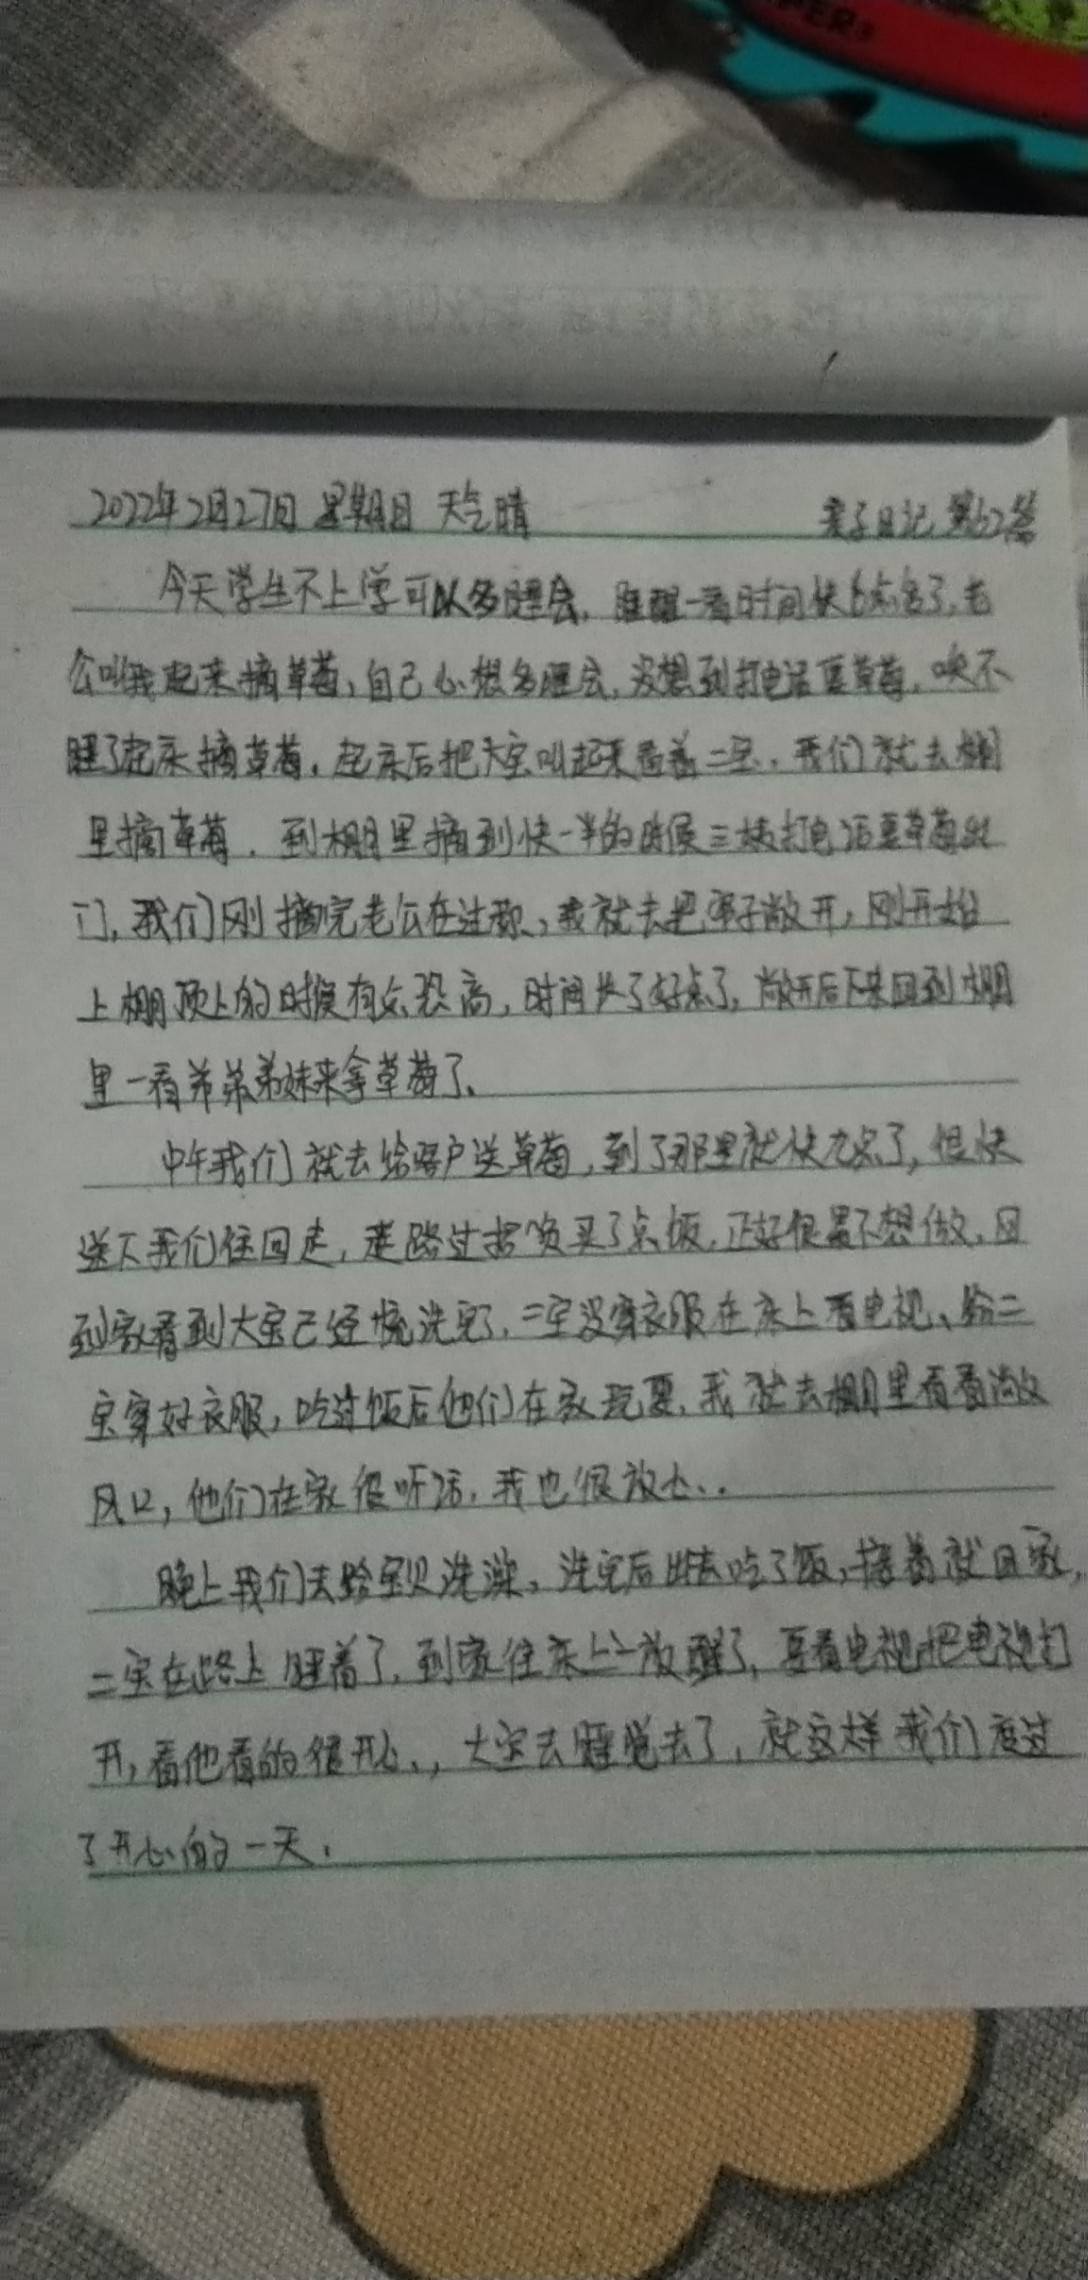 2022年2月27日 星期日 天气晴 亲子日记 第62篇
今天学生不上学可以多睡会，睡醒一看时间快6点多了，老
公叫我起来摘草莓，自己心想多睡会，没想到打电话要草莓，唉不
睡了起床摘草莓，起床后把大宝叫起来看着二宝，我们就去棚
里摘草莓，到棚里摘到快一半的时候三姨打电话要草莓出
门，我们刚摘完老公在过称，我就去把帘子敞开，刚开始
上棚顶上的时候有点恐高，时间长了好点了，敞开后下来回到棚
里一看弟弟弟妹来拿草莓了、
中午我们就去给客户送草莓，到了那里就快九点了，很快
送下我们往回走，走路过 买了点饭，正好很累不想做，回
到家看到大宝已经 洗完了，二宝没穿衣服在床上看电视、给二
宝穿好衣服，吃过饭后他们在家玩耍，我就去棚里看看敞
风口，他们在家很听话，我也很放心、．
晚上我们去给宝贝洗澡，洗完后出去吃了饭，接着就回家，
二宝在路上睡着了，到家往床上一放醒了，要看电视把电视打
开，看他看的很开心、，大宝去睡觉去了，就这样我们度过
了开心的一天．